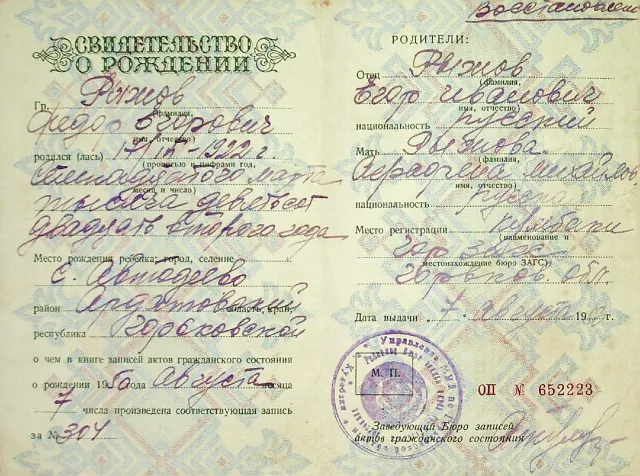 СВИДЕТЕЛЬСТВО
О РОЖДЕНИИ
Гр. Рыжов
(фамилия,
Федор Егорович
имя, отчество)
родился (лась) 17/III-1922 г.
(прописью и цифрами год,
Семнадцатого марта
месяц и число)
тысяча девятсот
двадцать второго года
Место рождения ребенка: город, селение
с. Автодеево
район Ардатовский область, край,
республика Горьковской
о чем в книге записей актов гражданского состояния
о рождении 1950 года августа месяца
7 числа произведена соответствующая запись
за № 304
Восстановлено
РОДИТЕЛИ:
Отец Рыжов
(фамилия,
Егор Иванович
имя, отчество)
национальность русский
Мать Рыжова
(фамилия,
имя, отчество)
национальность русская
Место регистрации Кулебаки
(наименование и
гор ЗАГС
местонахождение бюро ЗАГС)
Горьков. обл.
Дата выдачи 7 август 195 г.
М. П.
ОП № 652223
Заведующий Бюро записей
актов гражданского состояния